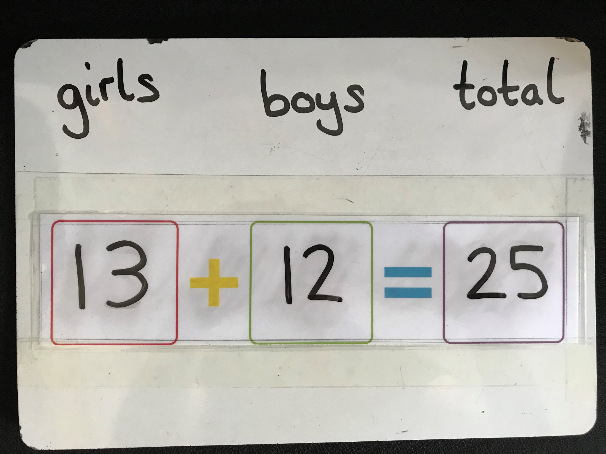 girls boys total
13 + 12 = 25